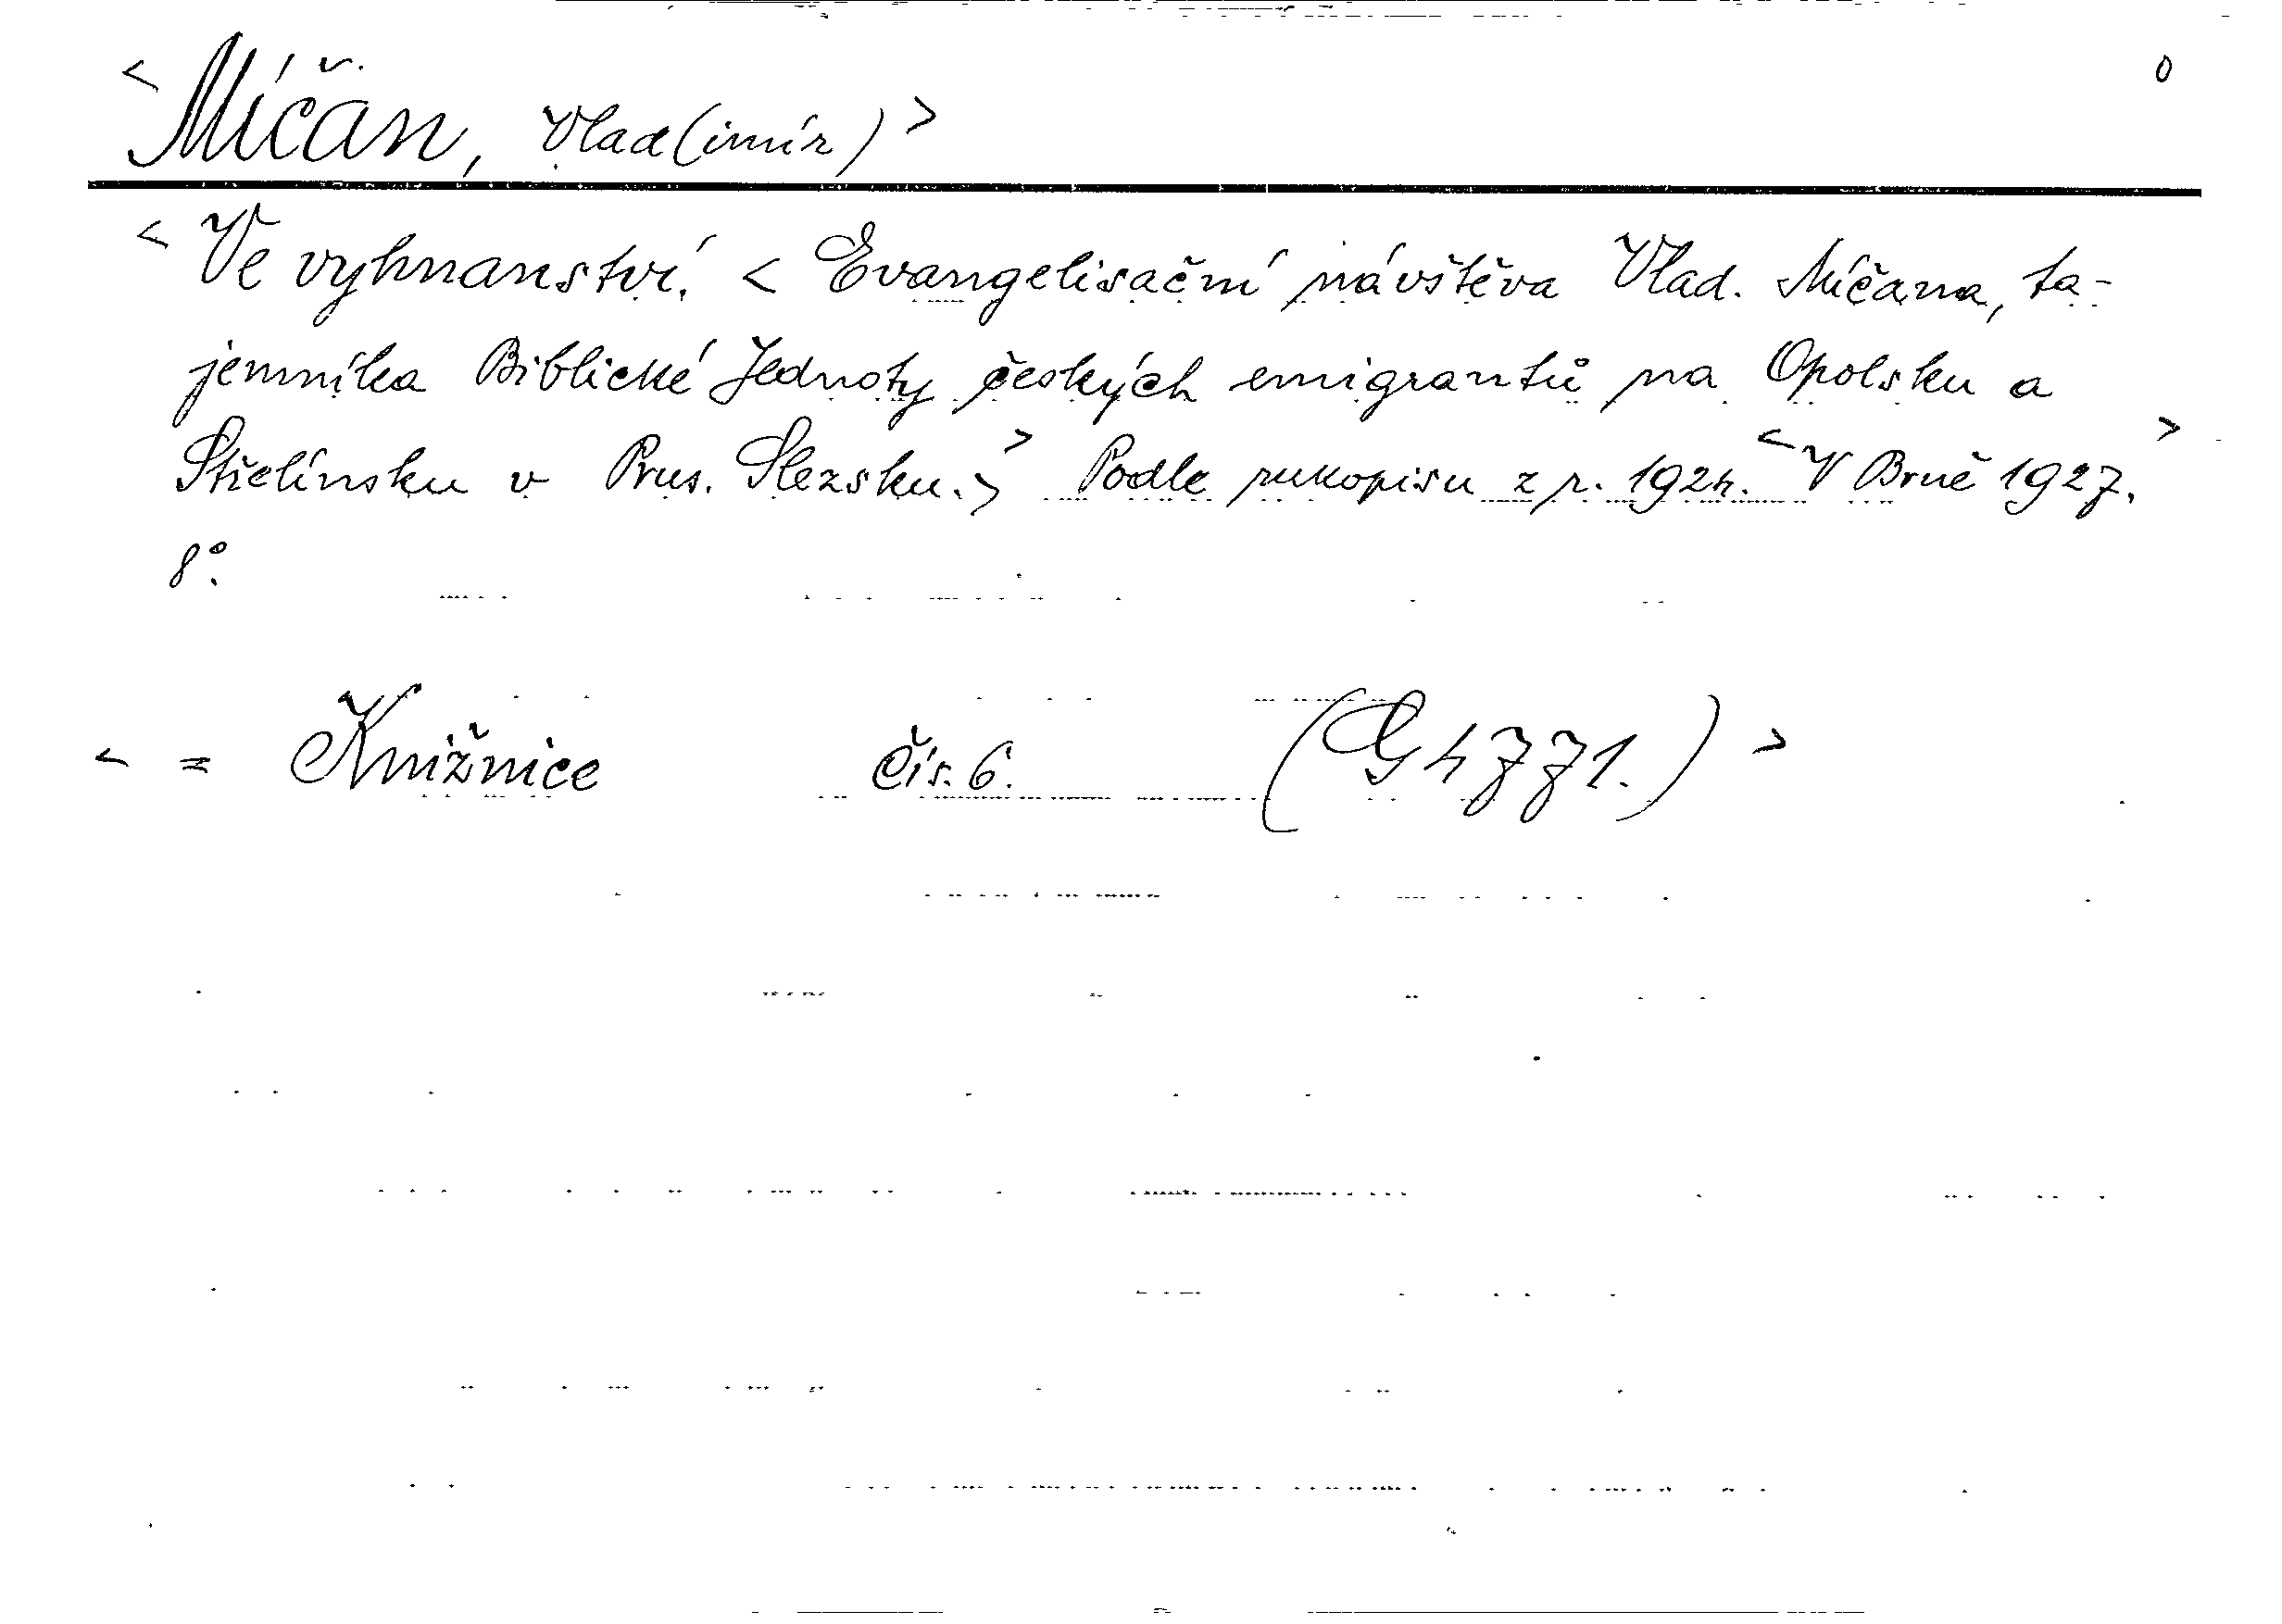 0
< Míčan, Vlad(imír) >
< Ve vyhnanství. < Evangelisační návštěva Vlad. Míčana, ta-
jemníka Biblické Jednoty českých emigrantů na Opolsku a
Střelínsku v Prus. Slezsku.> > Podle rukopisu z r. 1924. < V Brně 1927. >
8°.
< = Knižnice čís. 6. (G 4771.) >